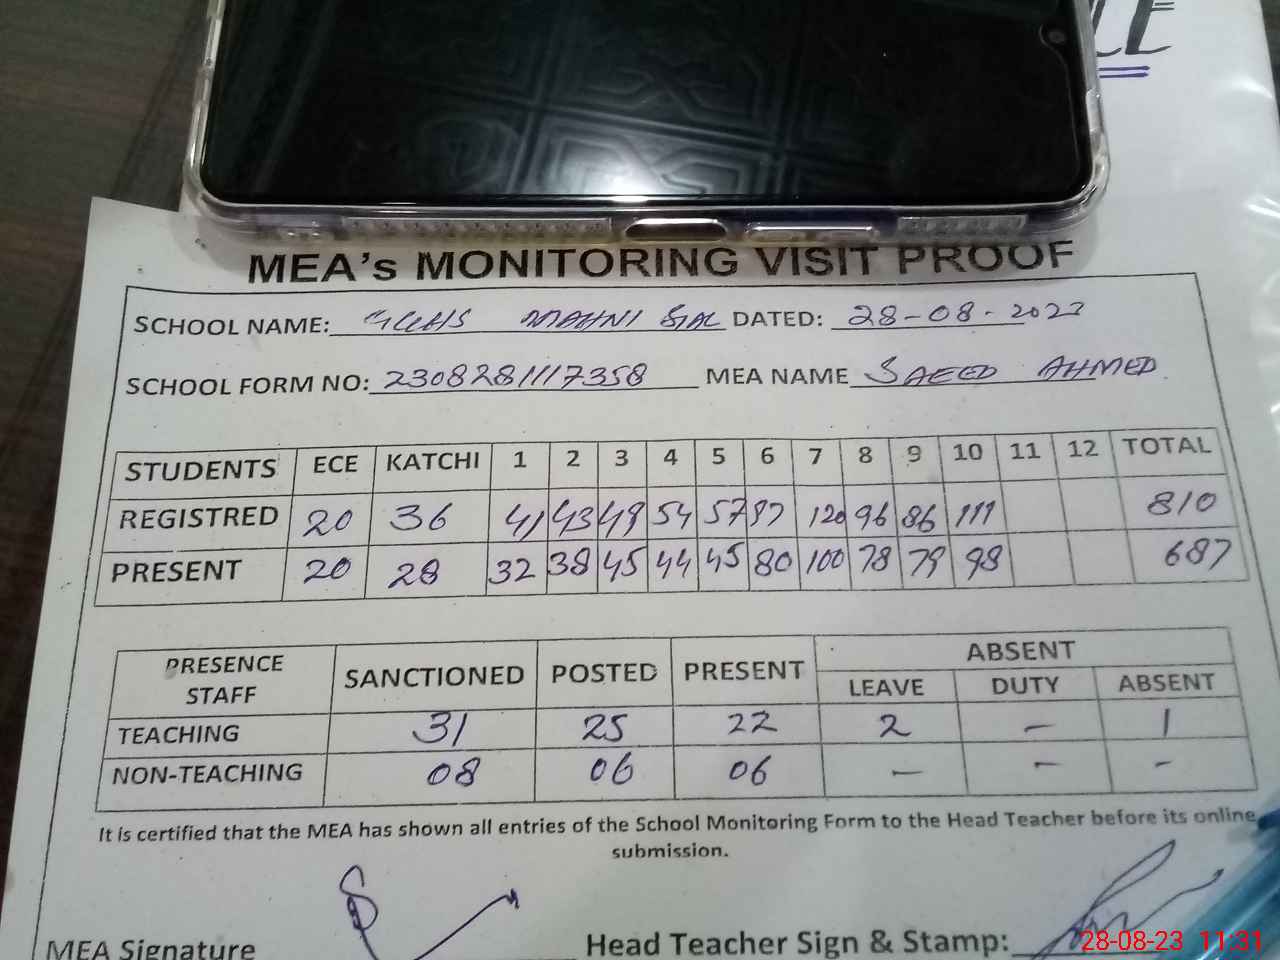 MEA's MONITORING VISIT PROOF
SCHOOL NAME: MAHNI SIAL DATED: 28-08-2023
SCHOOL FORM NO: 2308281117358 MEA NAME SAEED AHMED
STUDENTS ECE KATCHI 1 2 3 4 5 6 7 8 9 10 11 12 TOTAL
REGISTRED 20 36 41 43 49 54 57 97 120 96 86 111 810
PRESENT 20 28 32 38 45 44 45 80 100 78 79 98 687
PRESENCE STAFF SANCTIONED POSTED PRESENT ABSENT
LEAVE DUTY ABSENT
TEACHING 31 25 22 2 – 1
NON-TEACHING 08 06 06 – – -
It is certified that the MEA has shown all entries of the School Monitoring Form to the Head Teacher before its online
submission.
MEA Signature Head Teacher Sign & Stamp:
28-08-23 11:31